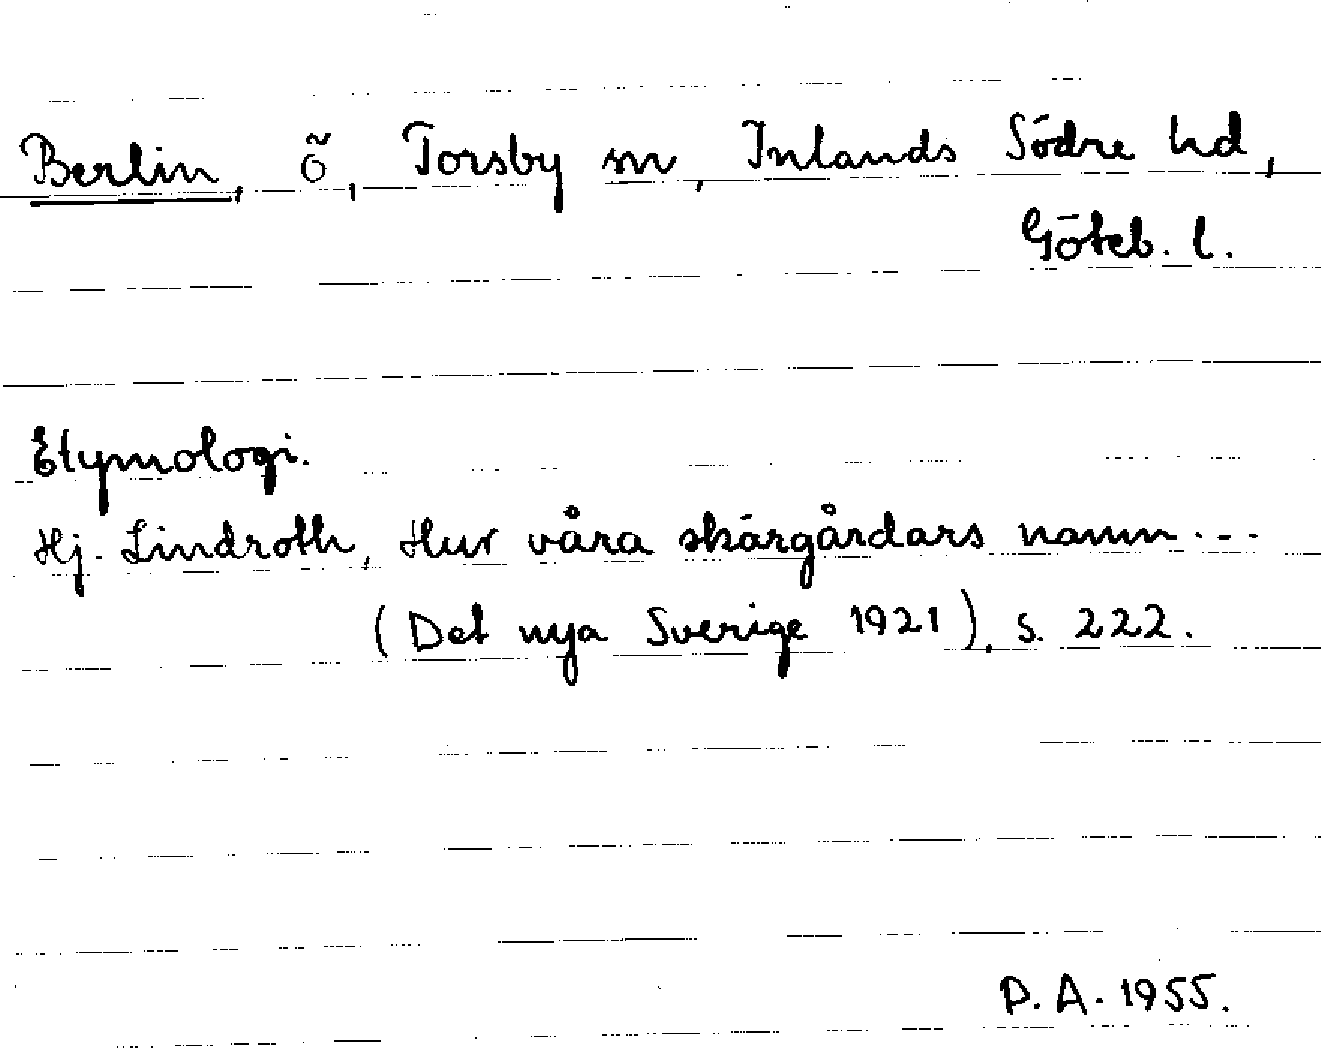 Berlin, ö, Torsby sn, Inlands Södre hd,
Göteb. l.
Etymologi.
Hj. Lindroth, Hur våra skärgårdars namn...
(Det nya Sverige 1921), s. 222.
P. A. 1955.